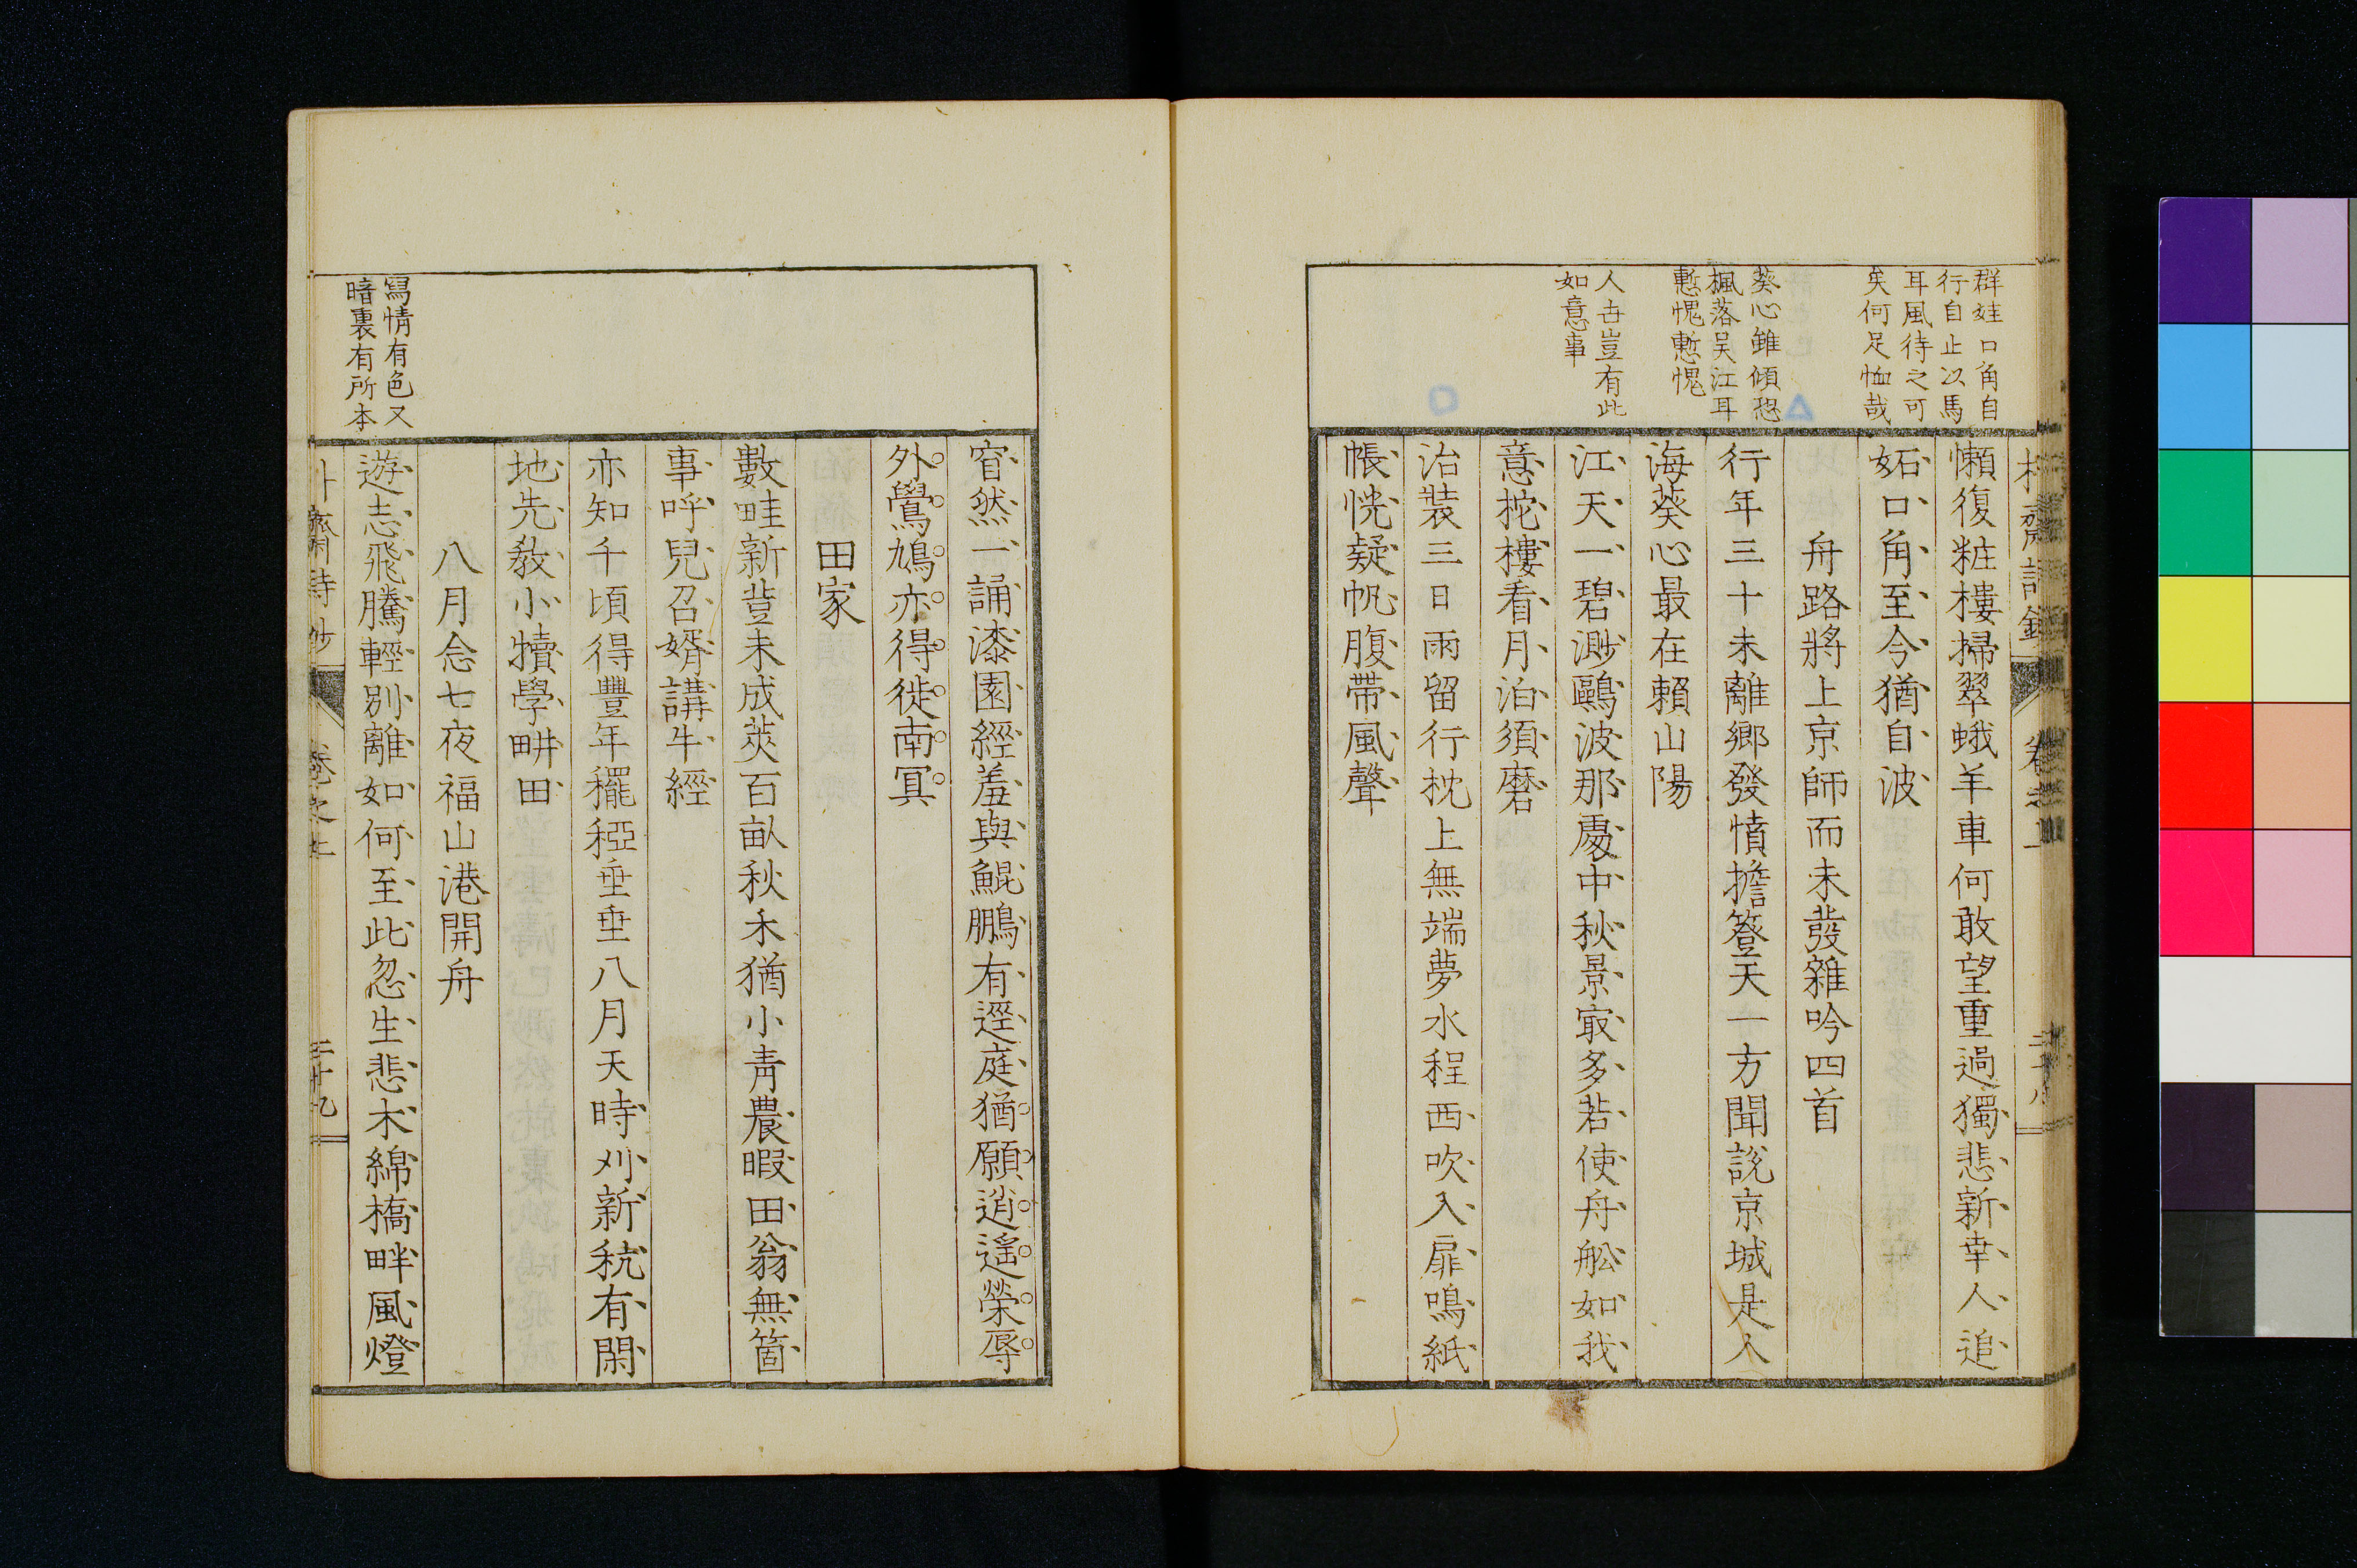 群娃口角自
行自止以馬
耳風待之可
矣何足恤哉
葵心雖傾恐
楓落吴江耳
慙愧慙愧
人吉豈有此
如意事
懶復粧樓掃翠蛾羊車何敢望重過獨悲新幸人追
妬口角至今猶自波
舟路將上京師而未發雜吟四首
行年三十未離鄉發憤擔簦天一方聞說京城是人
海葵心最在賴山陽
江天一碧渺鷗波那處中秋景㝡多若使舟舩如我
意挓樓看月泊須磨
治裝三日雨留行枕上無端夢水程西吹入扉鳴紙
帳恍疑帆腹帶風聲
窅然一誦漆園經羞與鯤鵬有逕庭猶願逍遙榮辱
外鷽鳩亦得徙南冥
田家
數畦新荳未成莢百畝秋禾猶小青農暇田翁無箇
事呼兒召婿講牛經
亦知千頃得豐年䆉稏垂垂八月天時刈新秔有閑
地先敎小犢學畊田
八月念七夜福山港開舟
寫情有色又
暗裏有所本
遊志飛騰輕別離如何至此忽生悲木綿橋畔風燈
齋詩鈔
卷之上
二十九